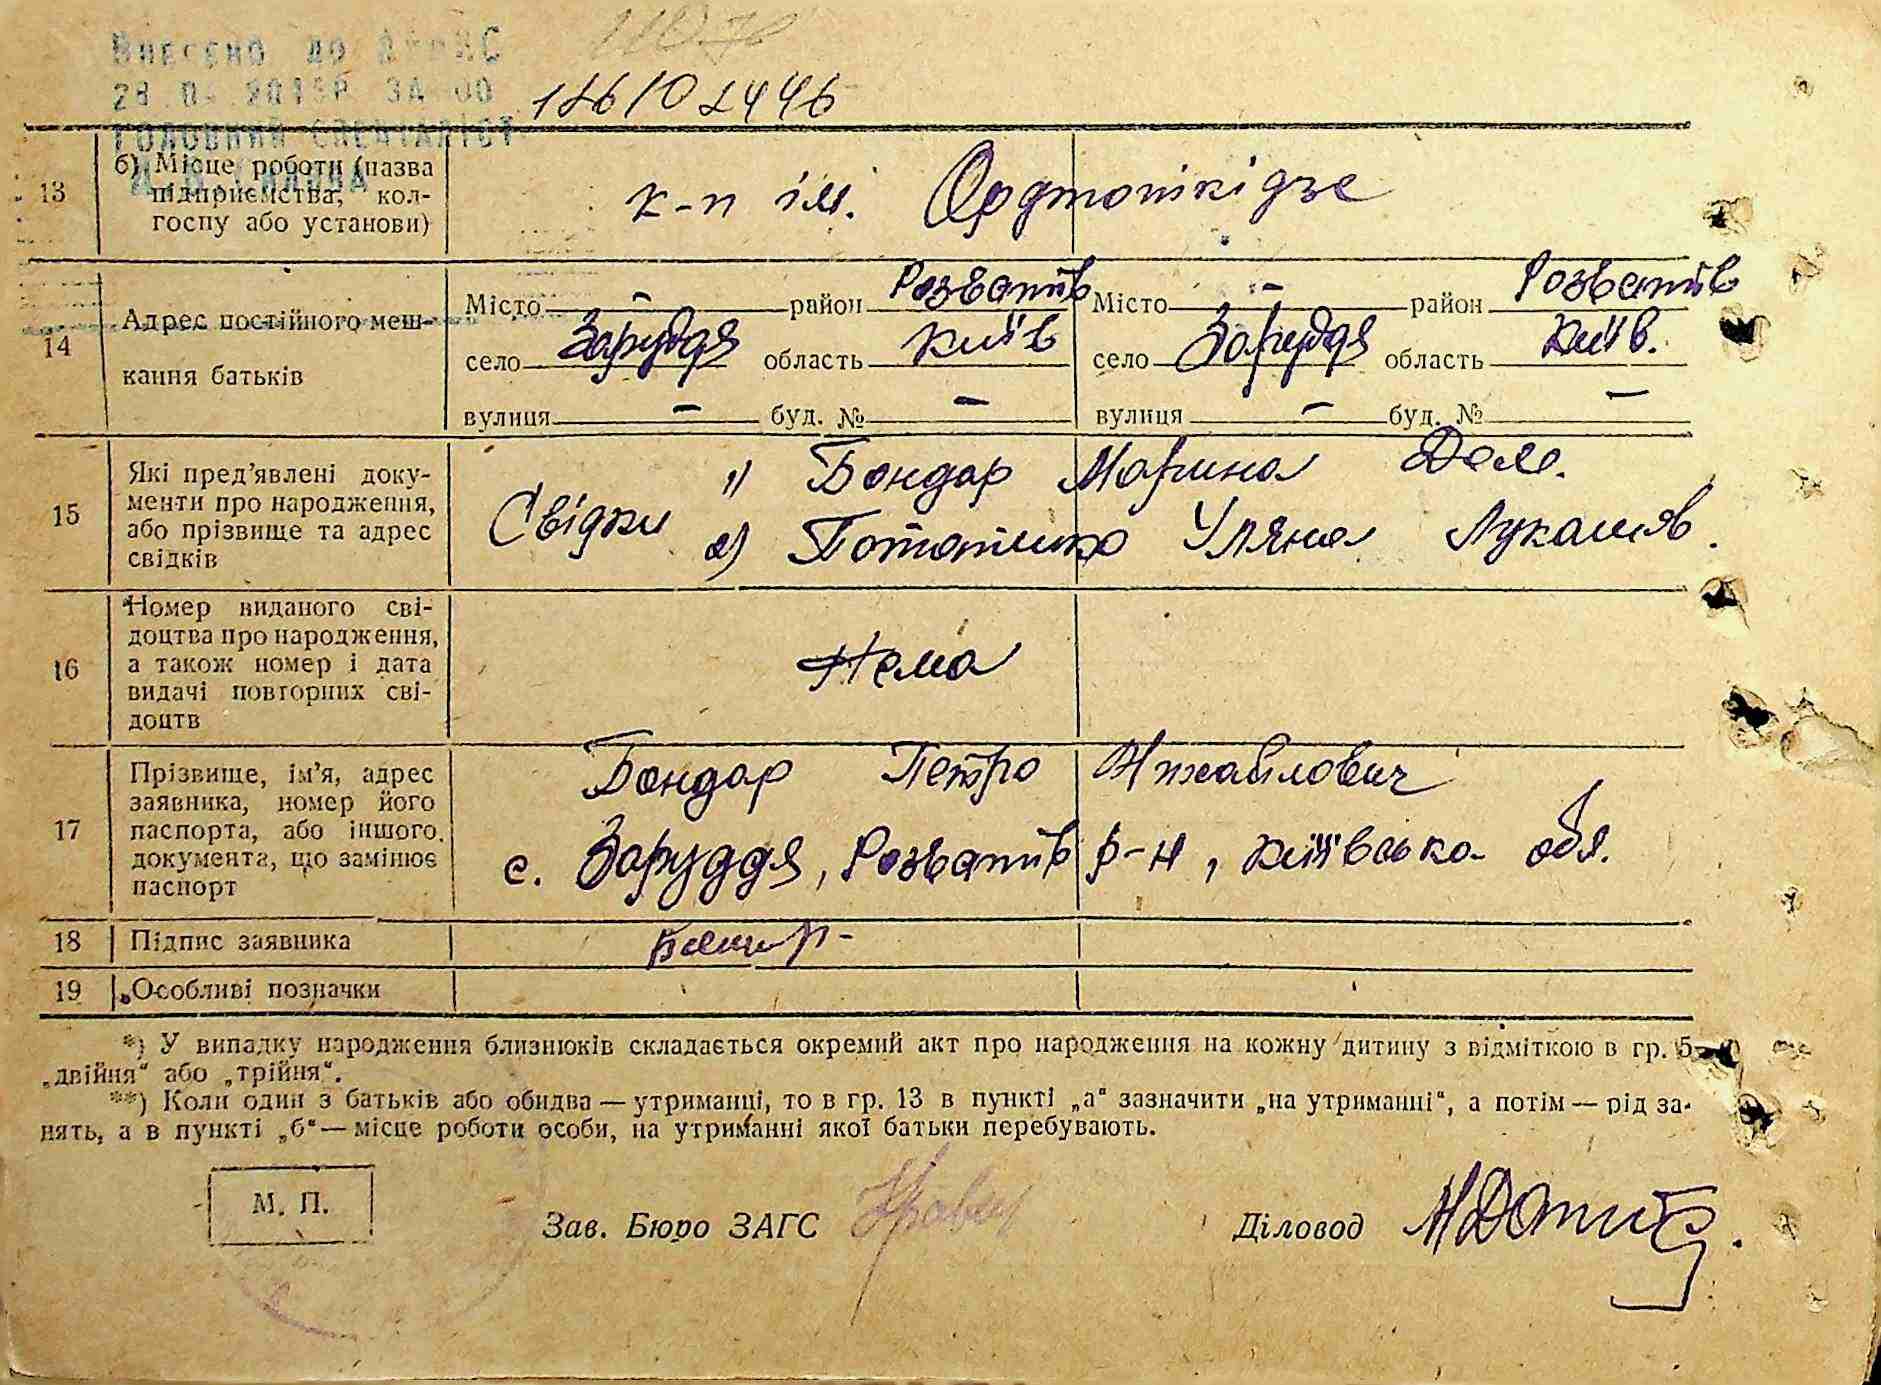 Внесено до
ГОЛОВНИЙ СПЕЦІАЛІСТ
13
б) Місце роботи (назва
підприємства, кол-
госпу або установи)
к-п ім. Орджонікідзе
14
Адрес постійного меш-
кання батьків
Місто — район Розважів Місто — район Розважів
село Заруддя область Київ село Заруддя область Київ.
вулиця — буд. № — вулиця — буд. № —
15
Які пред’явлені доку-
менти про народження,
або прізвище та адрес
свідків
Свідки 1) Бондар Марина Дем.
2) Уляна Лукашів.
16
Номер виданого сві-
доцтва про народження,
а також номер і дата
видачі повторних сві-
доцтв
Нема
17
Прізвище, ім’я, адрес
заявника, номер його
паспорта, або іншого
документа, що замінює
паспорт
Бондар Петро Михайлович
с. Заруддя, Розважів р-н, Київська обл.
18
Підпис заявника
19
Особливі позначки
*) У випадку народження близнюків складається окремий акт про народження на кожну дитину з відміткою в гр. 5
„двійня“ або „трійня“.
**) Коли один з батьків або обидва — утриманці, то в гр. 13 в пункті „а“ зазначити „на утриманні“, а потім — рід за-
нять, а в пункті „б“ — місце роботи особи, на утриманні якої батьки перебувають.
М. П.
Зав. Бюро ЗАГС
Діловод